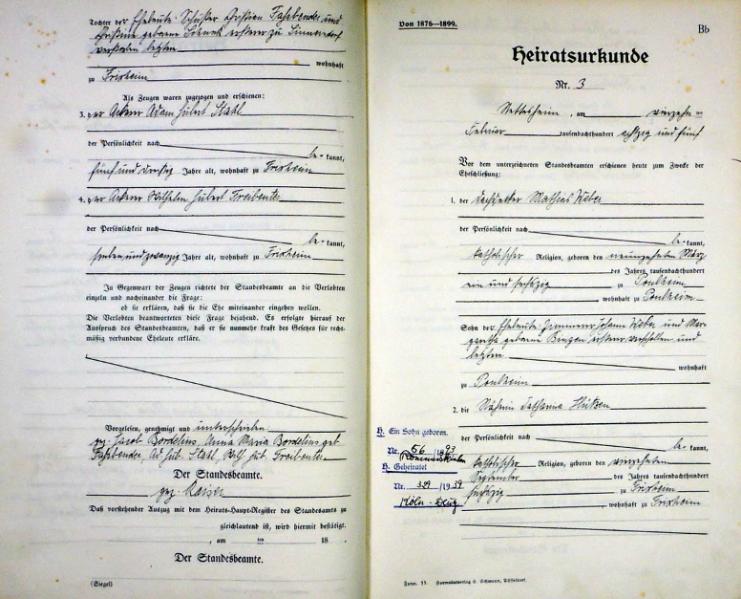 Tochter der Eheleute Schuster Christian Fahbender und
Christine geborene Schunk ersterer zu Sinnersdorf
verstorben letztere
wohnhaft
zu Frixheim
Als Zeugen waren zugezogen und erschienen:
3. der Ackerer Adam Hubert Stahl
der Persönlichkeit nach
be- kannt,
fünf und dreißig Jahre alt, wohnhaft zu Frixheim
4. der Ackerer Wilhelm Hubert
der Persönlichkeit nach
be- kannt,
sieben und zwanzig Jahre alt, wohnhaft zu Frixheim
In Gegenwart der Zeugen richtete der Standesbeamte an die Verlobten
einzeln und nacheinander die Frage:
ob sie erklären, daß sie die Ehe miteinander eingehen wollen.
Die Verlobten beantworteten diese Frage bejahend. Es erfolgte hierauf der
Ausspruch des Standesbeamten, daß er sie nunmehr kraft des Gesetzes für recht-
mäßig verbundene Eheleute erkläre.
Vorgelesen, genehmigt und unterschrieben
gez. Jacob Bordelius, Anna Maria Bordelius geb.
Fahbender, Ad. Hub. Stahl, Wilh. Hub.
Der Standesbeamte.
gez. Kaiser
Daß vorstehender Auszug mit dem Heirats-Haupt-Register des Standesamts zu
gleichlautend ist, wird hiermit bestätigt.
, am ten 18
Der Standesbeamte.
(Siegel)
Von 1876—1899.
Bb
Heiratsurkunde
Nr. 3
Nettesheim, am vierzehn
Februar tausendachthundert achtzig und fünf
Vor dem unterzeichneten Standesbeamten erschienen heute zum Zwecke der
Eheschließung:
1. der Dachdecker Mathias Weber
der Persönlichkeit nach
be- kannt,
katholischer Religion, geboren den neunzehnten März
des Jahres tausendachthundert
ein und sechszig zu Poulheim
wohnhaft zu Poulheim
Sohn der Eheleute Zimmerer Johann Weber und Mar-
garetha geborene Bingen ersterer verschollen und
letztere
wohnhaft
zu Poulheim
2. die Näherin Catharina
der Persönlichkeit nach
be- kannt,
katholischer Religion, geboren den vierzehnten
September des Jahres tausendachthundert
sechszig zu Frixheim
wohnhaft zu Frixheim
H. Ein Sohn geboren.
Nr. 56 /1893
H. Geheiratet
Nr. 399 /1939
Köln-Deutz
Form. 11. Formularverlag L. Schwann, Düsseldorf.